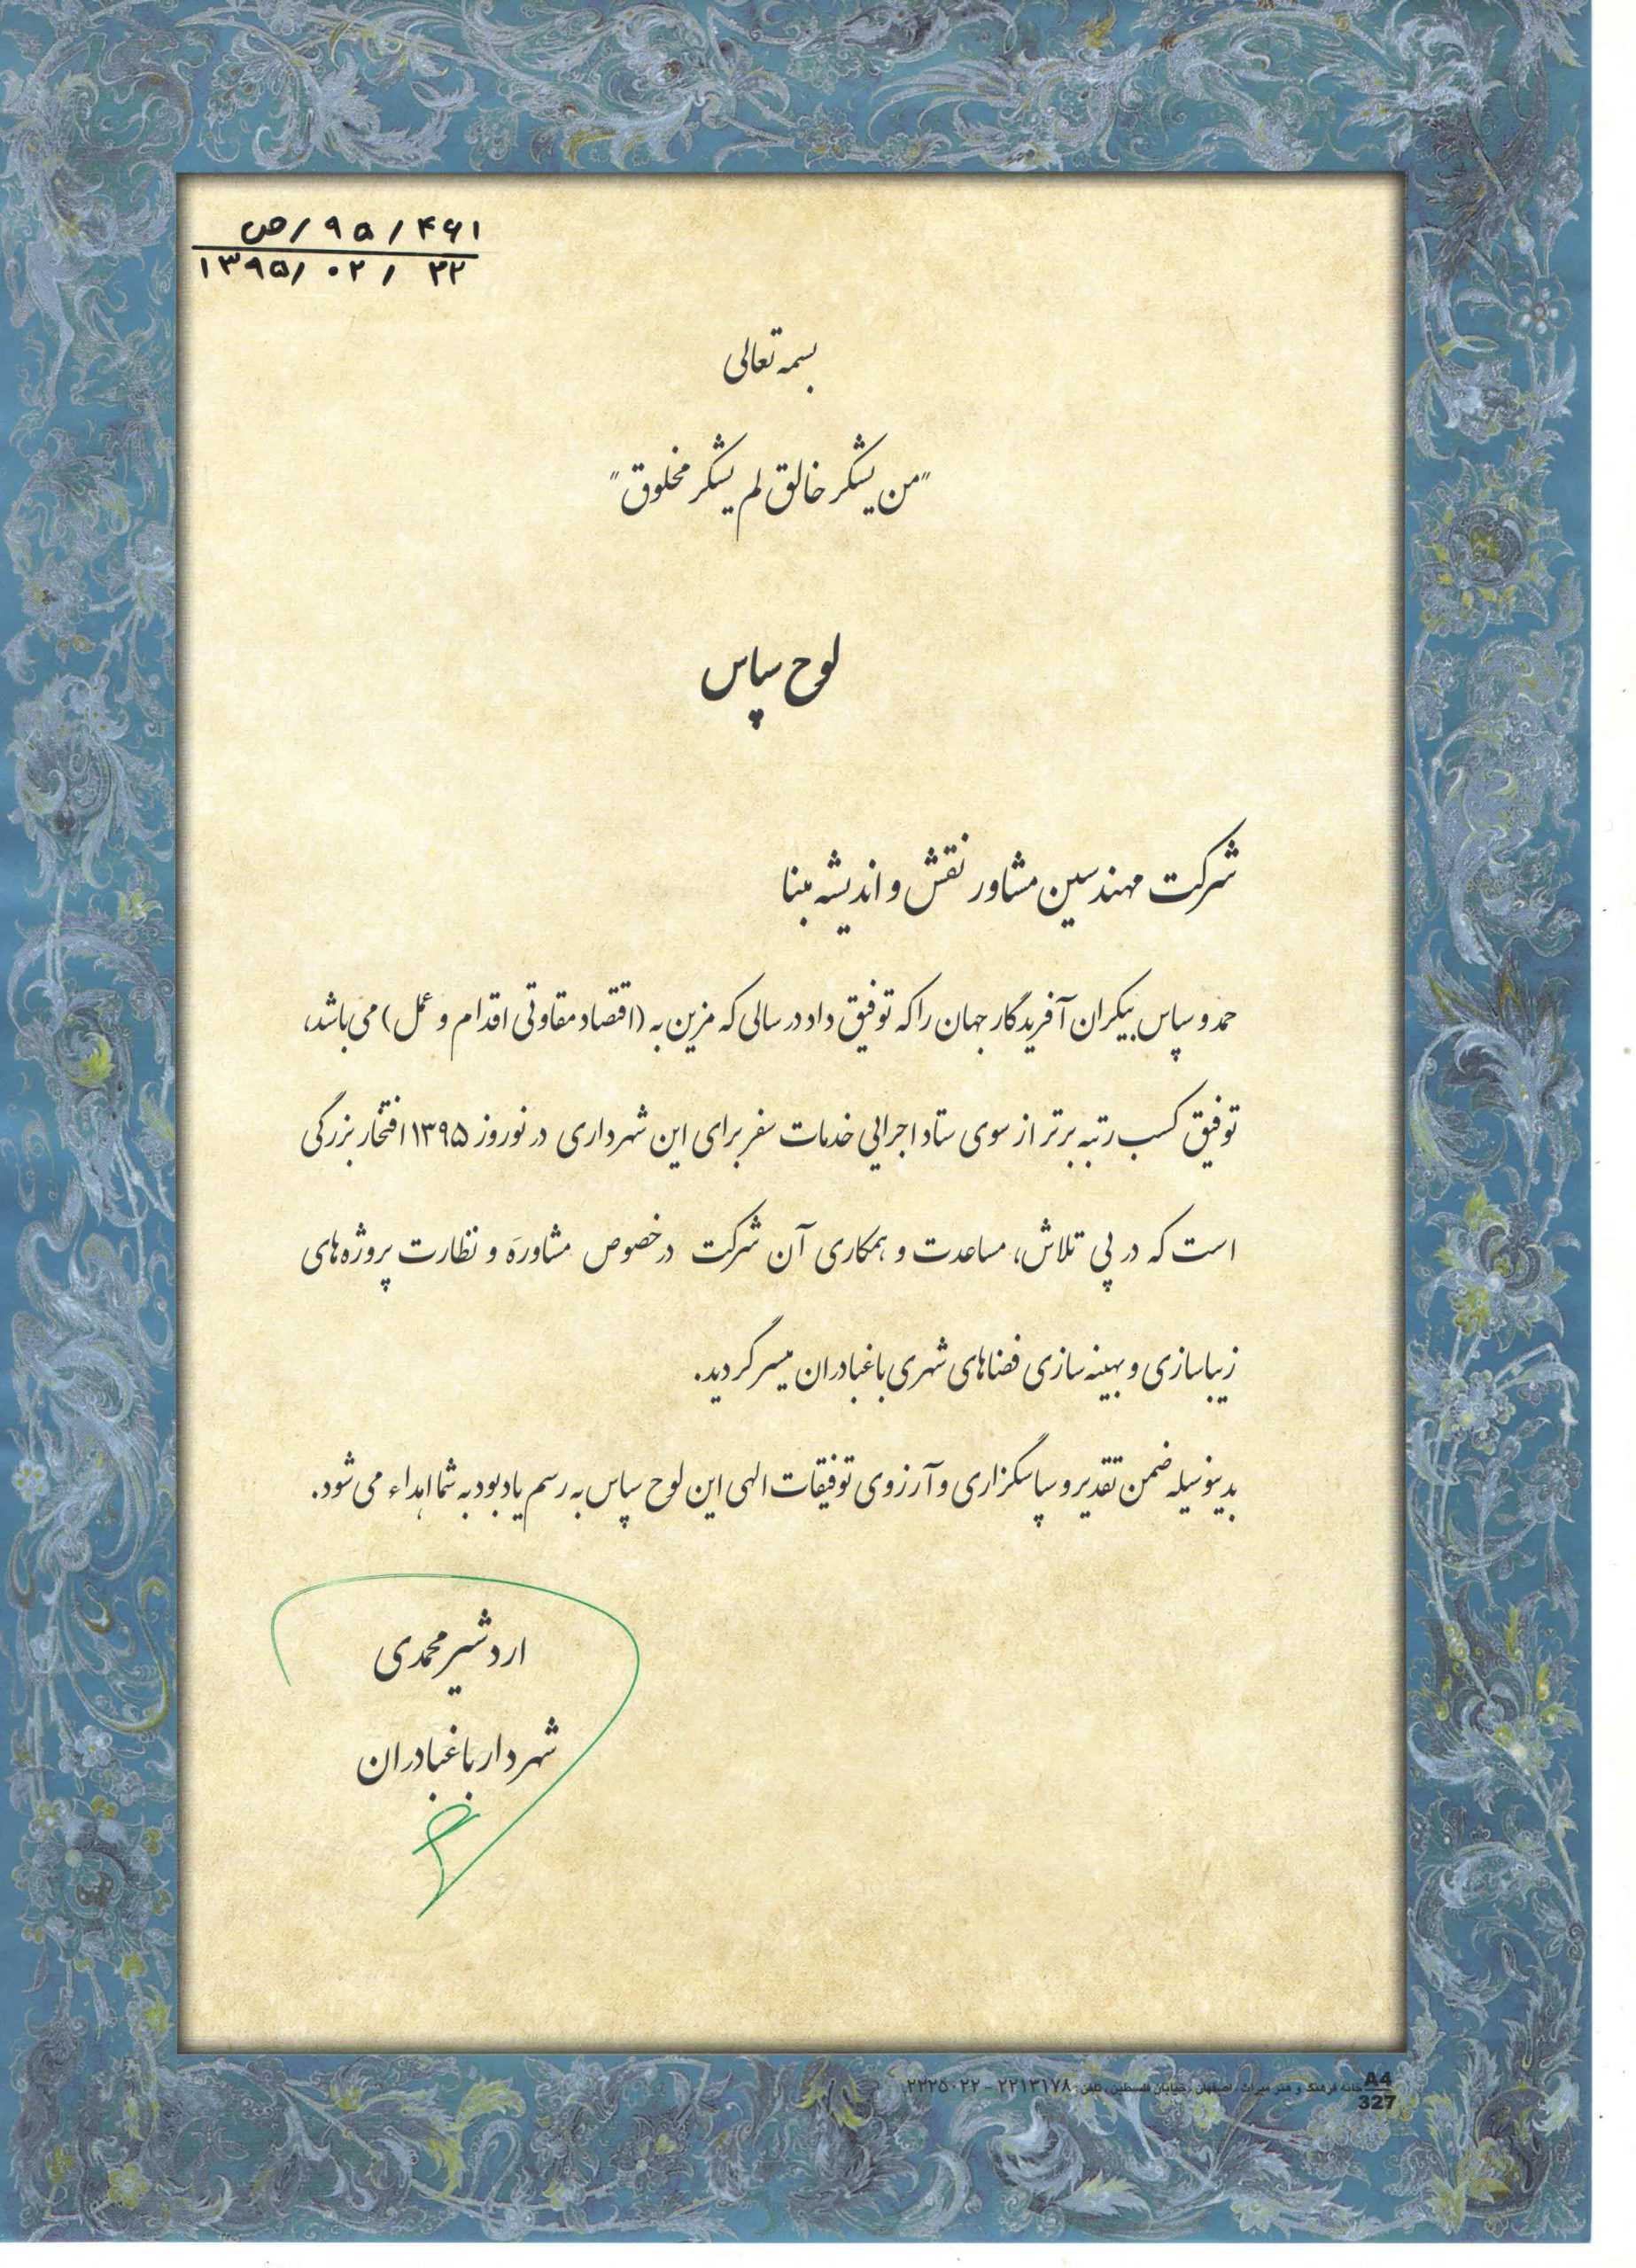 ۴۶۱/۹۵/ص
۱۳۹۵/۰۲/۲۲
بسمه تعالی
"من یشکر خالق لم یشکر مخلوق"
لوح سپاس
شرکت مهندسین مشاور نقش و اندیشه مبنا
حمد و سپاس بیکران آفریدگار جهان را که توفیق داد در سالی که مزین به (اقتصاد مقاوتی اقدام و عمل) می باشد،
توفیق کسب رتبه برتر از سوی ستاد اجرایی خدمات سفر برای این شهرداری در نوروز ۱۳۹۵ افتخار بزرگی
است که در پی تلاش، مساعدت و همکاری آن شرکت در خصوص مشاوره و نظارت پروژه های
زیباسازی و بهینه سازی فضاهای شهری باغبادران میسر گردید.
بدینوسیله ضمن تقدیر و سپاسگزاری و آرزوی توفیقات الهی این لوح سپاس به رسم یادبود به شما اهداء می شود.
اردشیر محمدی
شهردار باغبادران
خانه فرهنگ و هنر میراث، اصفهان، خیابان فلسطین، تلفن: ۲۲۱۳۱۷۸ - ۲۲۲۵۰۲۲
A4
327